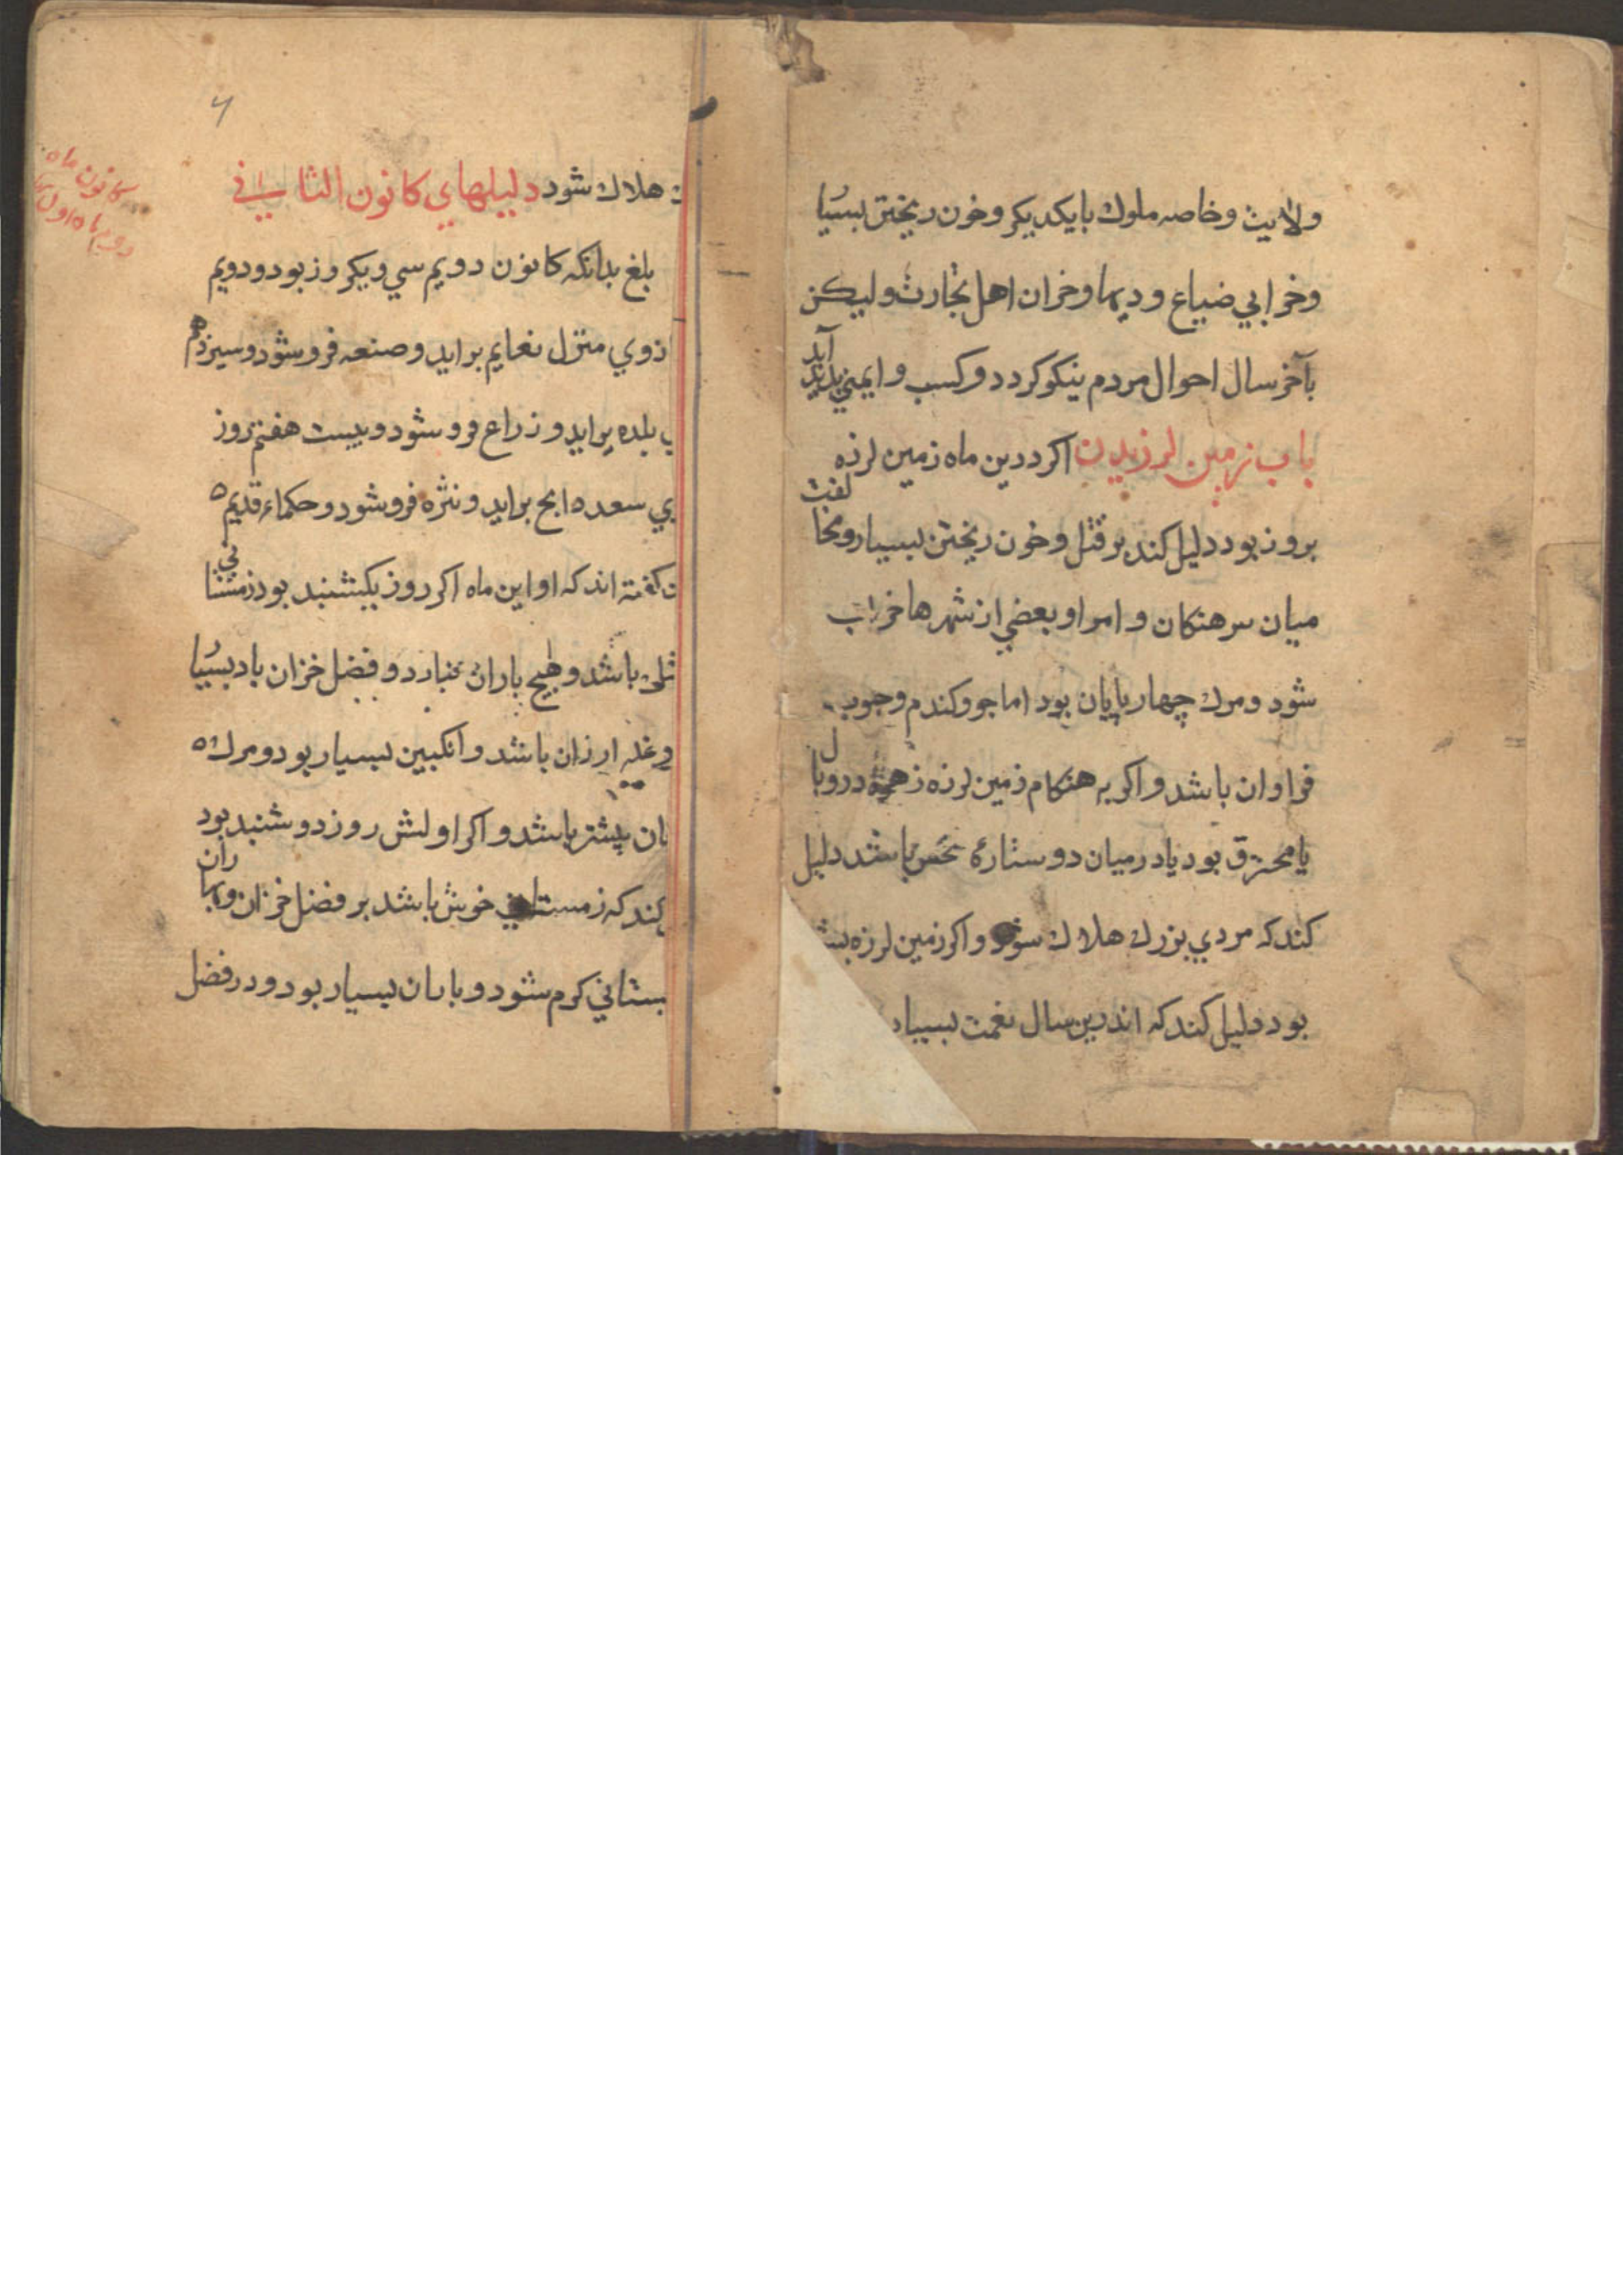 ولایت وخاصه ملوك بایکدیکر وخون ریختن بسیا
وخرابي ضیاع ودیها وخران اهل تجارت ولیکن
بآخر سال احوال مردم نیکو کردد وکسب وایمني پدید آید
باب زمین لرزیدن اکر درین ماه زمین لرزه
بروز بود دلیل کند بر قتل وخون ریختن بسیار ومخا لفت
میان سرهنکان وامرا وبعضي از شهرها خراب
شود ومرك چهارپایان بود اما جو وکندم وحبوب
فراوان باشد واکر به هنکام زمین لرزه زهره در وبا ل
یا محترق بود یا در میان دو ستارهٔ نحس باشد دلیل
کند که مردي بزرك هلاك شود واکر زمین لرزه بشب
بود دلیل کند که اندرین سال نعمت بسیار
هلاك شود دلیلهاي کانون الثاني
بلغ بدانکه کانون دویم سي ویکروز بود ودویم
ازوي منزل نعایم براید وهنعه فروشود وسیزدهم
بلده براید وذراع فروشود وبیست هفتم روز
سعد ذابح براید ونثره فروشود وحکماء قدیم
کفته اند که او این ماه اکر روز یکشنبد بود زمستا ني
باشد وهیچ باران نبارد وفضل خزان باد بسیا
وغله ارزان باشد وانکبین بسیار بود ومرك
بیشتر باشد واکر اولش روز دوشنبد بود
کند که زمستاني خوش باشد بر فضل خزان وبها ران
کرم شود وباران بسیار بود ودر فضل
کانون ماه